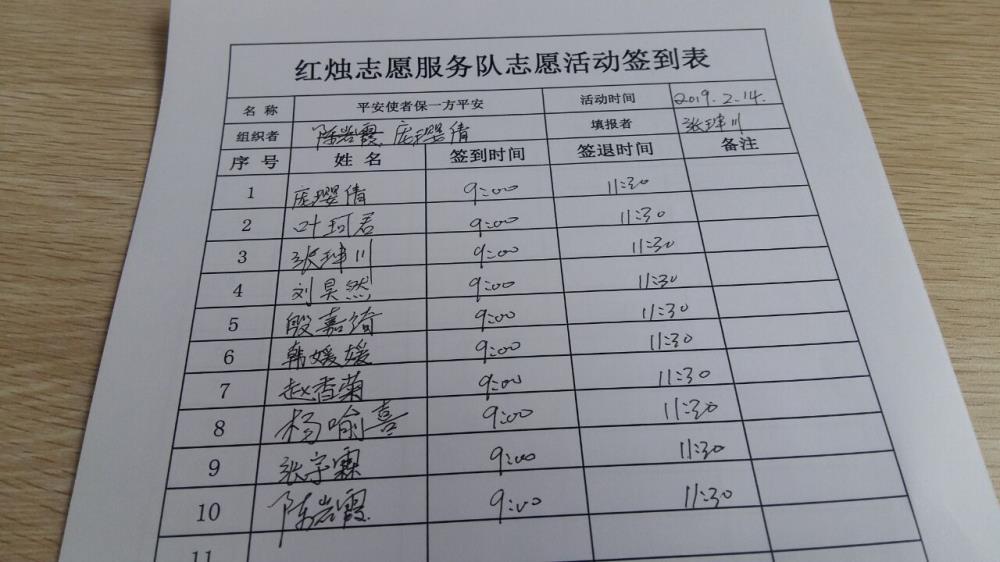 红烛志愿服务队志愿活动签到表
名称 平安使者保一方平安 活动时间 2019.2.14.
组织者 陈岩霞 庞璎倩 填报者 张珒川
序号 姓名 签到时间 签退时间 备注
1 庞璎倩 9:00 11:30
2 叶珂君 9:00 11:30
3 张珒川 9:00 11:30
4 刘昊然 9:00 11:30
5 殷嘉绮 9:00 11:30
6 韩媛媛 9:00 11:30
7 赵香菊 9:00 11:30
8 杨喻喜 9:00 11:30
9 张宇霖 9:00 11:30
10 陈岩霞 9:00 11:30
11